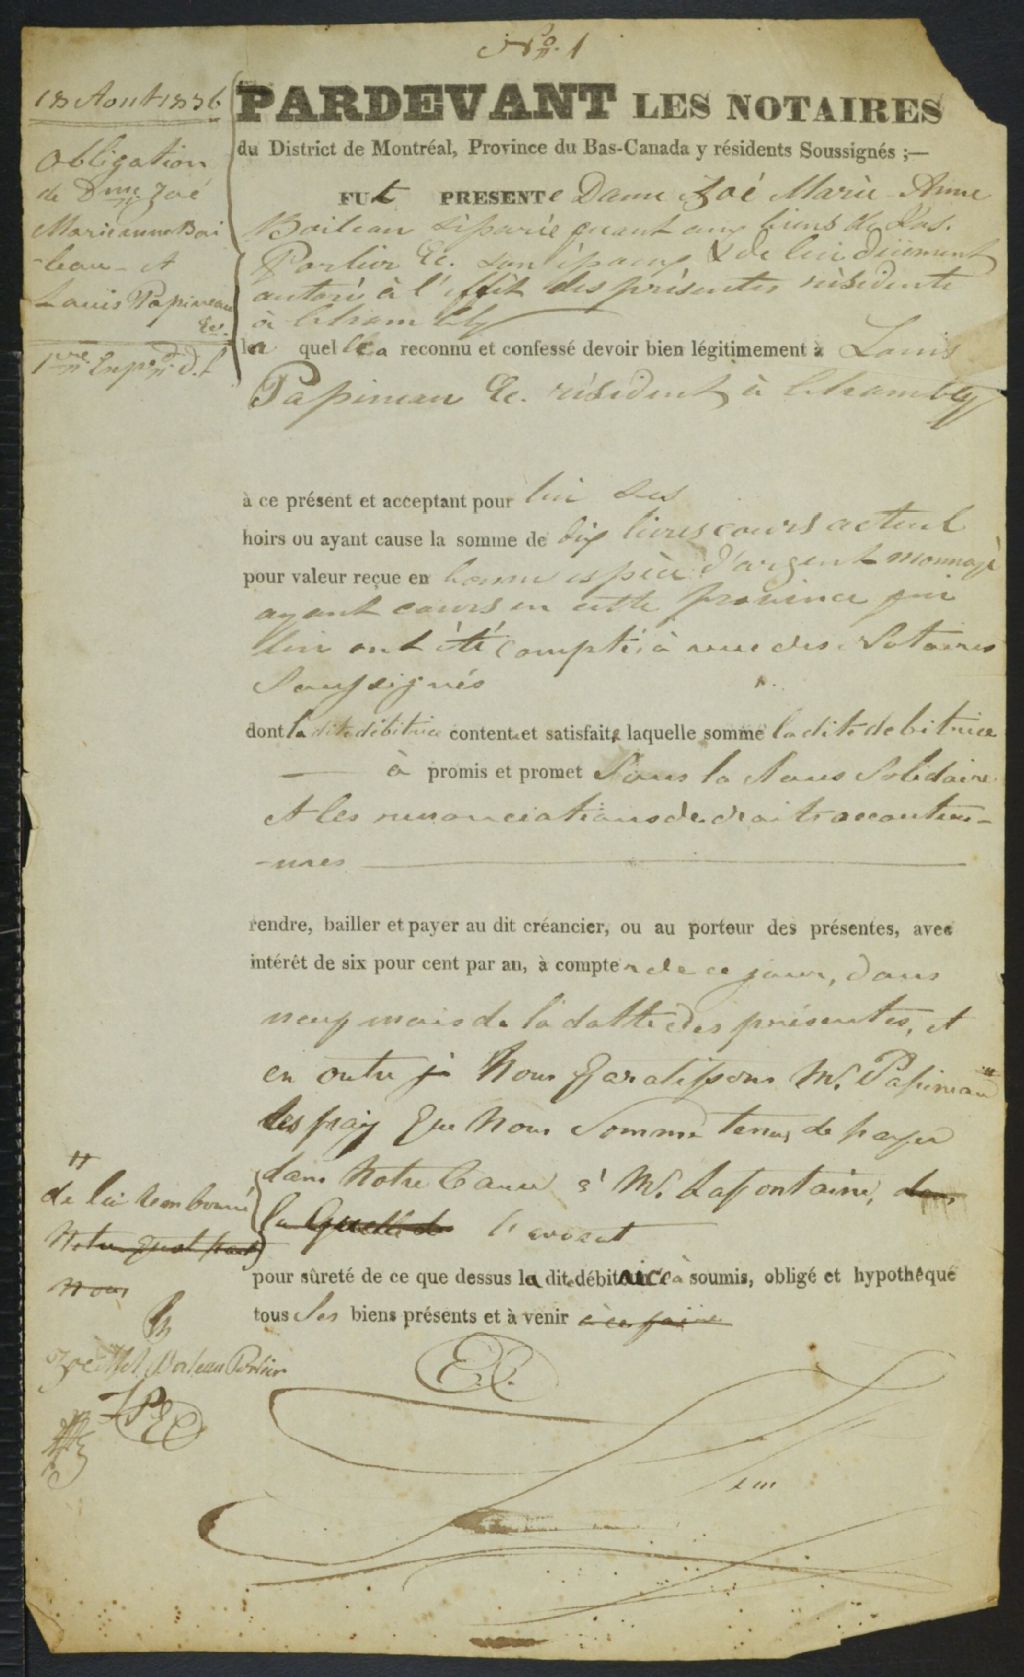 No. 1
18 Aout 1836
Obligation
de Dme. Zoé
Marie anne Boi
-leau - et
Louis Papineau
Ec.
1re Exp. d. f
PARDEVANT LES NOTAIRES
du District de Montréal, Province du Bas-Canada y résidents Soussignés ;—
FUt PRESENTe Dame Zoé Marie Anne
Boileau séparée quant aux biens de
Portier Ec. son époux & de lui dûement
autorisée à l'effet des présentes résidente
à Chambly
la quelle a reconnu et confessé devoir bien légitimement à Louis
Papineau Ec. résident à Chambly
à ce présent et acceptant pour lui ses
hoirs ou ayant cause la somme de dix livres cours actuel
pour valeur reçue en bonne espèce d'argent monnayé
ayant cours en cette province qui
lui ont été compté à vue des Notaires
Soussignés
dont la dite débitrice contente et satisfaite laquelle somme la dite debitrice
à promis et promet Sous la Clause Solidaire
et les renonciations de droits accoutu-
-mées
rendre, bailler et payer au dit créancier, ou au porteur des présentes, avec
intérêt de six pour cent par an, à compter de ce jour, dans
neuf mois de la datte des présentes, et
en outre je Nous Garatissons Mr. Papineau
les frais Que Nous Somme tenus de payer
dans Notre Cause à Mr. Lafontaine, dans
la Quelle de l'avocat
"
de lui Rembourser
Notre Quot part
nous
pour sûreté de ce que dessus la dite débitrice à soumis, obligé et hypothéqué
tous Ses biens présents et à venir à ce faire
Zoé M. A. Boileau Portier